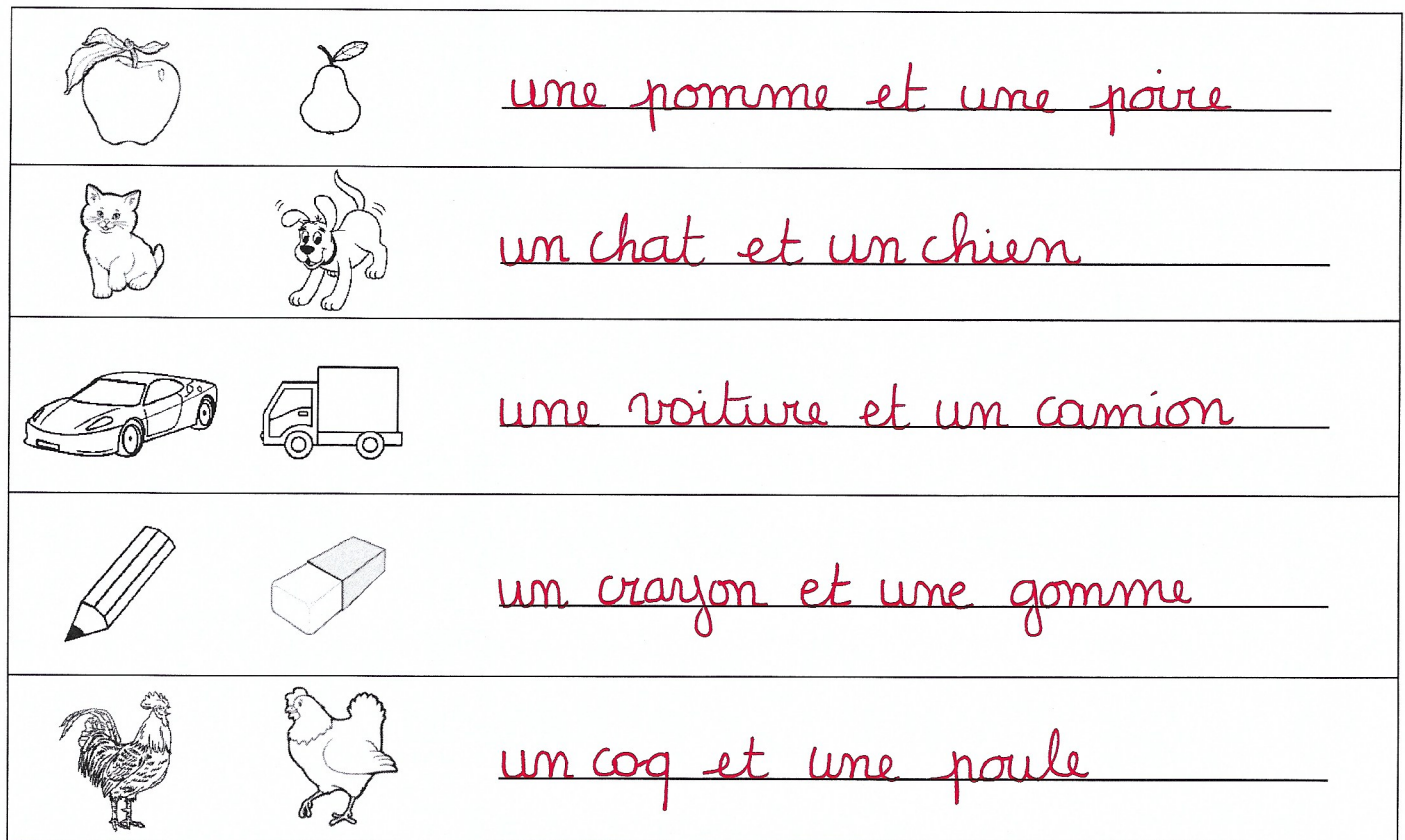 une pomme et une poire
un chat et un chien
une voiture et un camion
un crayon et une gomme
un coq et une poule